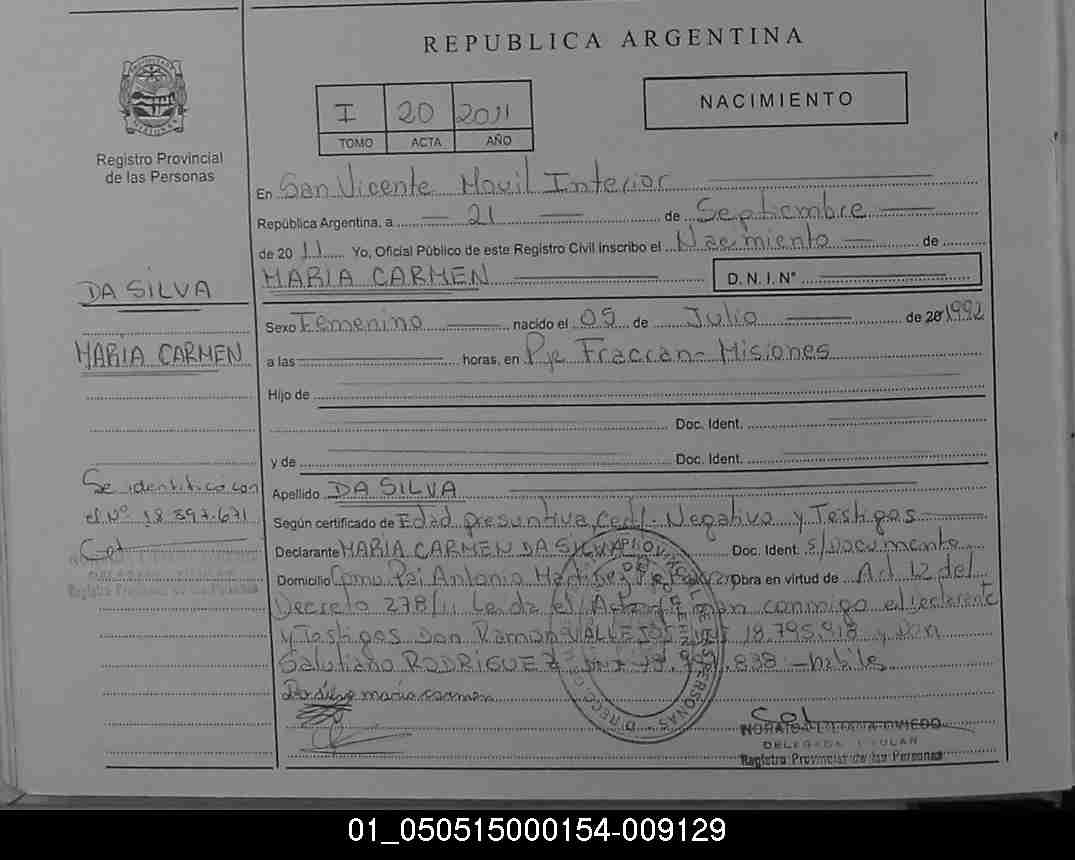 REPUBLICA ARGENTINA
I 20 2011
TOMO ACTA AÑO
NACIMIENTO
Registro Provincial
de las Personas
DA SILVA
MARIA CARMEN
Se identifica con
el Nº 18.397.671
En San Vicente Movil Interior
República Argentina, a 21 de Septiembre
de 2011 Yo, Oficial Público de este Registro Civil inscribo el Nacimiento de
MARIA CARMEN D. N. I. Nº
Sexo Femenino nacido el 05 de Julio de 20 1992
a las horas, en Pje Fracran - Misiones
Hijo de
Doc. Ident.
y de Doc. Ident.
Apellido DA SILVA
Según certificado de Edad presuntiva, Negativa y Testigos
Declarante MARIA CARMEN DA SILVA Doc. Ident. s/Documento
Domicilio Antonio Obra en virtud de Art 12 del
Decreto 278/11 Leida el Acta firman conmigo declarante
y Testigos Don Ramon 18.795.918 y Don
RODRIGUEZ .838 - habiles
Da silva maria carmen
DELEGADA TITULAR
Registro Provincial de las Personas
01_050515000154-009129